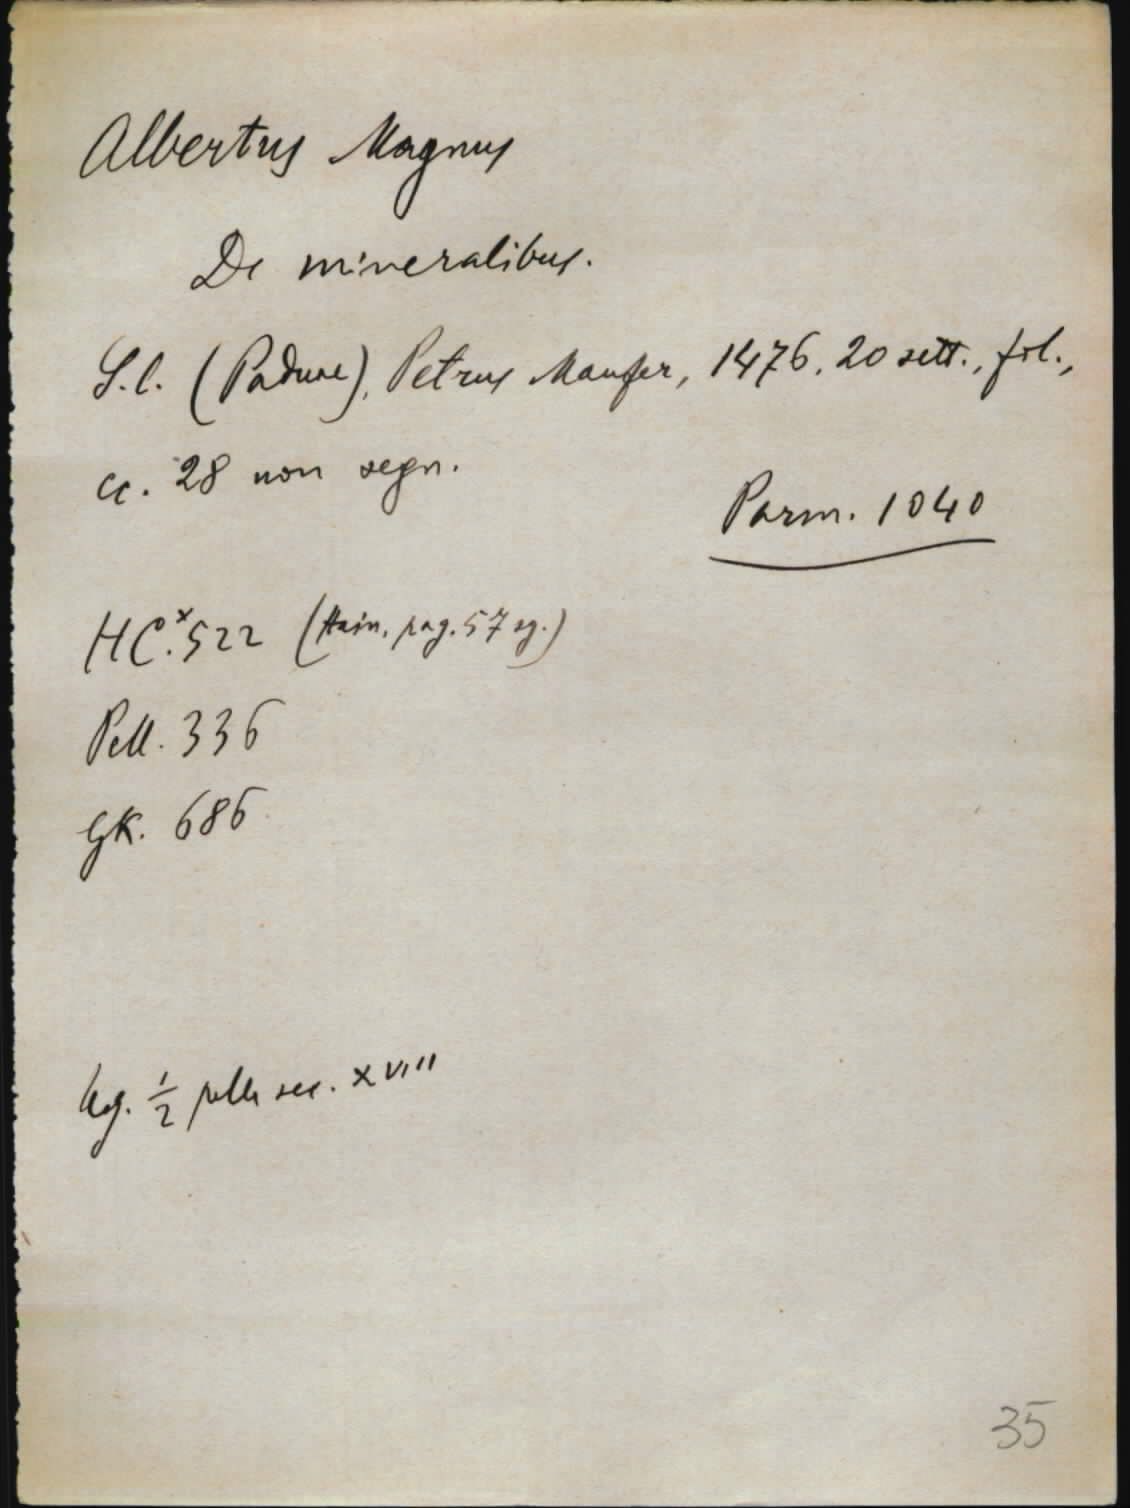 Albertus Magnus
De mineralibus.
S.l. (Padune), Petrus Maufer, 1476, 20 sett., fol.,
cc. 28 non segn.
Parm. 1040
HC.x522 (Hain, pag. 57 sg.)
Pell. 336
GK. 686
Leg. 1/2 pelle sec. XVIII
35